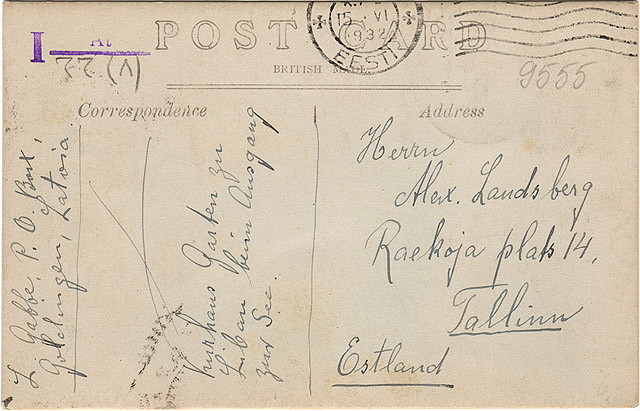 POST CARD
BRITISH MADE
I
At
22 (V)
15 VI
1932
EESTI
9555
Correspondence
Address
L. Gabbe, P. O. Box 1,
Goldingen, Latvia.
Kurhaus Garten zu
Libau beim Ausgang
zur See.
Herrn
Alex. Landsberg
Raekoja plats 14.
Tallinn
Estland